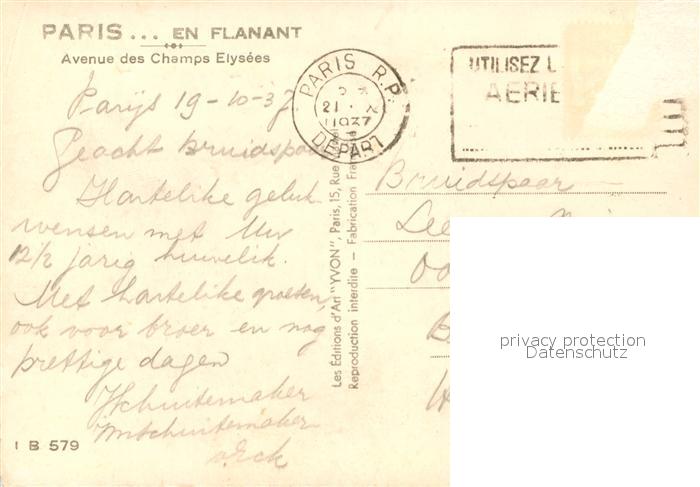 PARIS... EN FLANANT
Avenue des Champs Elysées
Parijs 19-10-37
Geacht Bruidspaar
Hartelike geluk
wensen met Uw
12½ jarig huwelik.
Met hartelike groeten,
ook voor broer en nog
prettige dagen
Schuitemaker
Schuitemaker
I B 579
PARIS R.P.
21
1937
DEPART
UTILISEZ L
AERIE
Les Editions d'Art "YVON", Paris, 15, Rue
Reproduction interdite - Fabrication Fra
Bruidspaar
privacy protection
Datenschutz